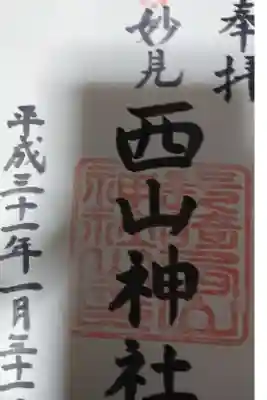 奉拝
妙見
西山神社
平成三十一年一月三十一